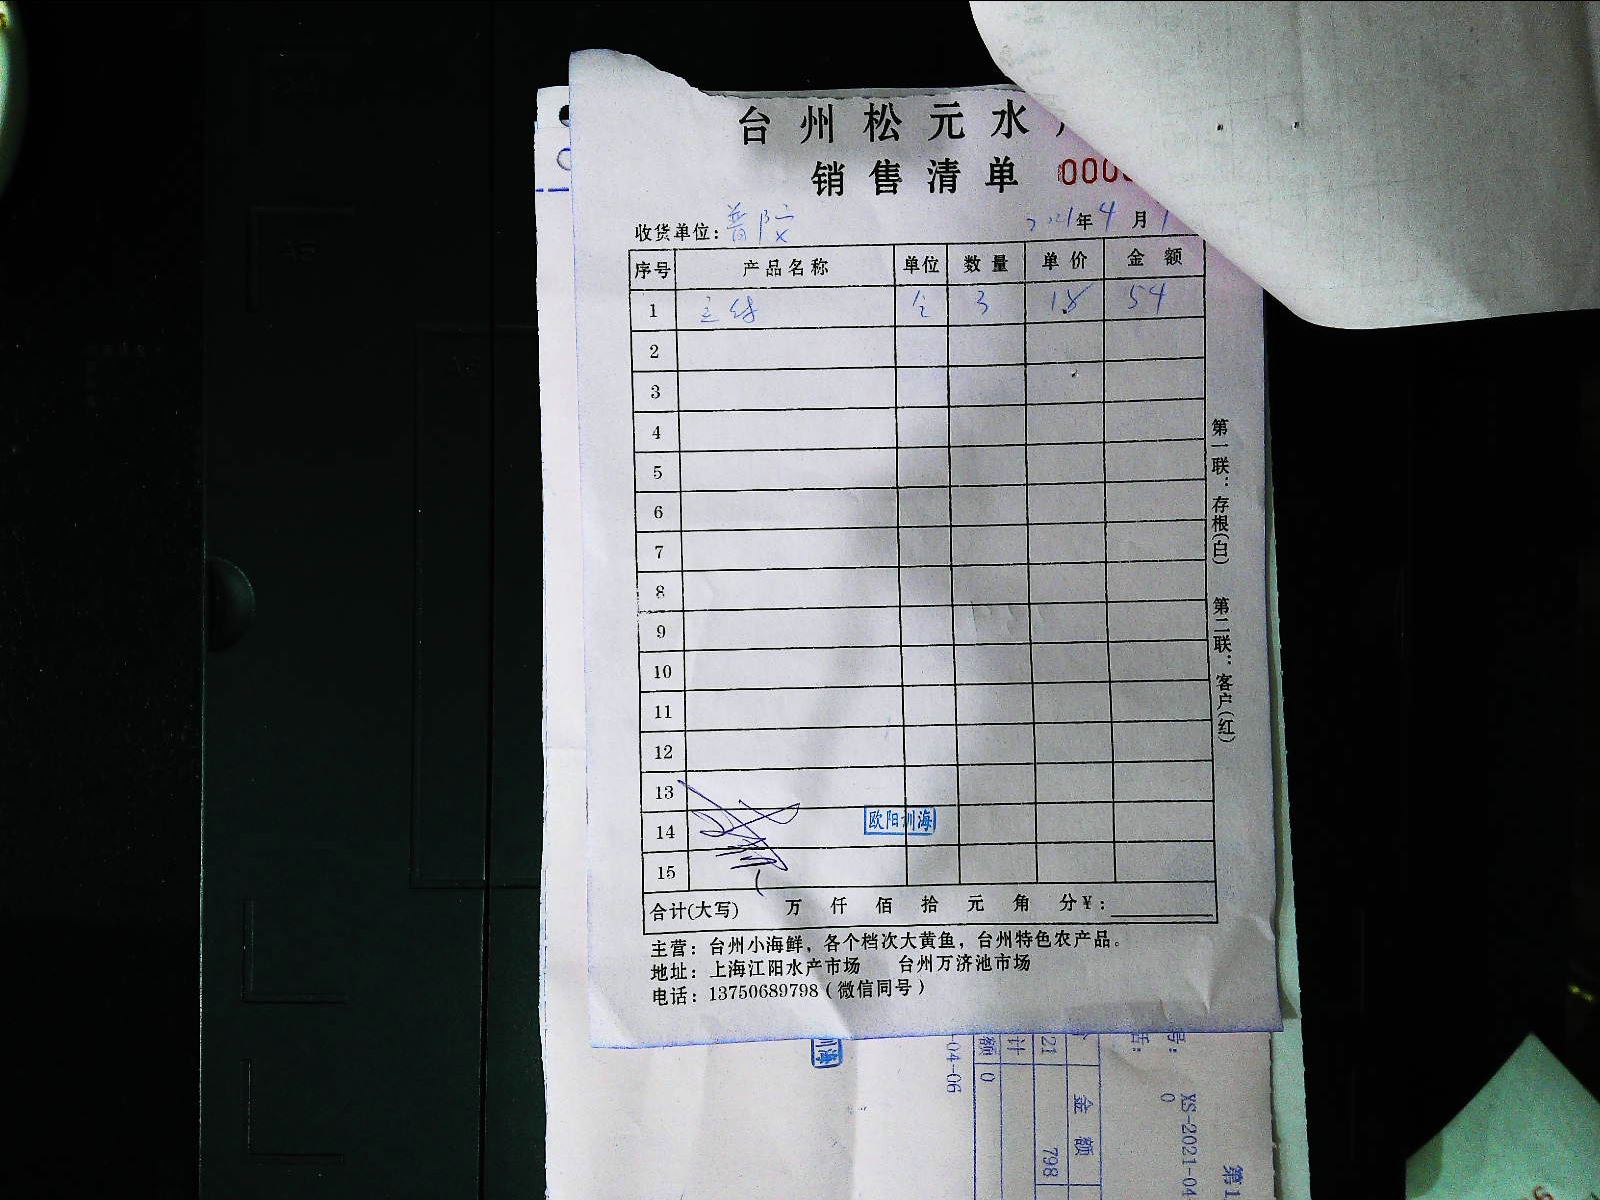 台州松元水
销售清单 000
收货单位：普陀 2021年4月1
序号 产品名称 单位 数量 单价 金额
1 3 18 54
2
3
4
5
6
7
8
9
10
11
12
13
14 欧阳圳海
15
合计(大写) 万 仟 佰 拾 元 角 分¥：
主营：台州小海鲜，各个档次大黄鱼，台州特色农产品。
地址：上海江阳水产市场 台州万济池市场
电话：13750689798（微信同号）
第一联：存根(白) 第二联：客户(红)
圳海
-04-06
额 0
计
21
金额
798
号：
话：
XS-2021-04
0
第1